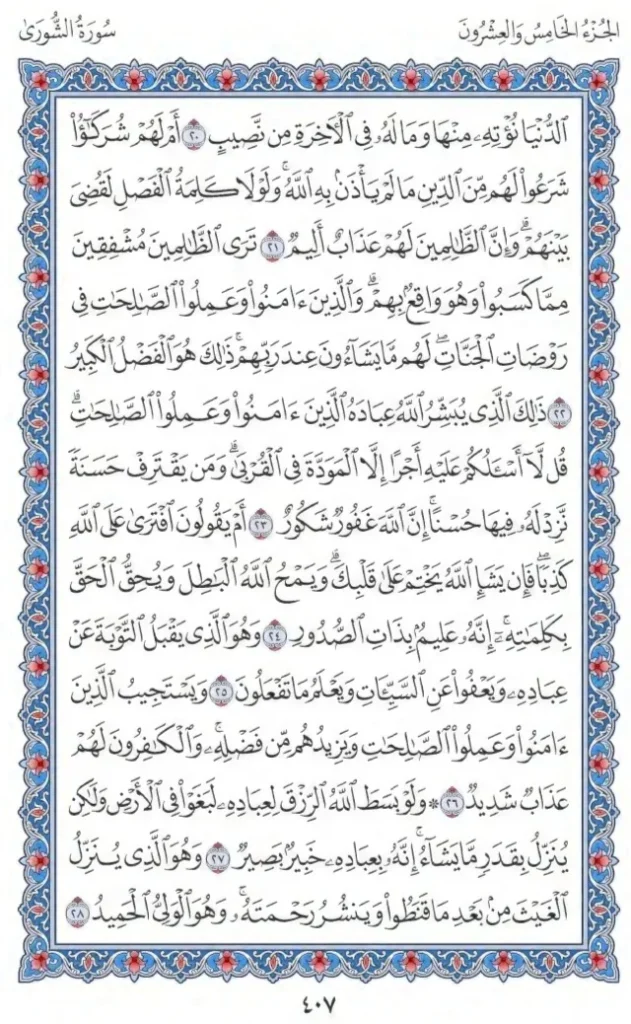 الجُزْءُ الخَامِسُ وَالعِشْرُونَ
سُورَةُ الشُّورَىٰ
الدُّنْيَا نُؤْتِهِۦ مِنْهَا وَمَا لَهُۥ فِي الْأَخِرَةِ مِن نَّصِيبٍ ٢٠ أَمْ لَهُمْ شُرَكَٰٓؤُا۟
شَرَعُوا۟ لَهُم مِّنَ الدِّينِ مَا لَمْ يَأْذَنۢ بِهِ اللَّهُ ۚ وَلَوْلَا كَلِمَةُ الْفَصْلِ لَقُضِيَ
بَيْنَهُمْ ۗ وَإِنَّ الظَّٰلِمِينَ لَهُمْ عَذَابٌ أَلِيمٌ ٢١ تَرَى الظَّٰلِمِينَ مُشْفِقِينَ
مِمَّا كَسَبُوا۟ وَهُوَ وَاقِعٌۢ بِهِمْ ۗ وَالَّذِينَ ءَامَنُوا۟ وَعَمِلُوا۟ الصَّٰلِحَٰتِ فِي
رَوْضَاتِ الْجَنَّاتِ ۖ لَهُم مَّا يَشَآءُونَ عِندَ رَبِّهِمْ ۚ ذَٰلِكَ هُوَ الْفَضْلُ الْكَبِيرُ
٢٢ ذَٰلِكَ الَّذِي يُبَشِّرُ اللَّهُ عِبَادَهُ الَّذِينَ ءَامَنُوا۟ وَعَمِلُوا۟ الصَّٰلِحَٰتِ ۗ
قُل لَّآ أَسْـَٔلُكُمْ عَلَيْهِ أَجْرًا إِلَّا الْمَوَدَّةَ فِي الْقُرْبَىٰ ۗ وَمَن يَقْتَرِفْ حَسَنَةً
نَّزِدْ لَهُۥ فِيهَا حُسْنًا ۚ إِنَّ اللَّهَ غَفُورٌ شَكُورٌ ٢٣ أَمْ يَقُولُونَ افْتَرَىٰ عَلَى اللَّهِ
كَذِبًا ۖ فَإِن يَشَإِ اللَّهُ يَخْتِمْ عَلَىٰ قَلْبِكَ ۗ وَيَمْحُ اللَّهُ الْبَٰطِلَ وَيُحِقُّ الْحَقَّ
بِكَلِمَٰتِهِۦٓ ۚ إِنَّهُۥ عَلِيمٌۢ بِذَاتِ الصُّدُورِ ٢٤ وَهُوَ الَّذِي يَقْبَلُ التَّوْبَةَ عَنْ
عِبَادِهِۦ وَيَعْفُوا۟ عَنِ السَّيِّـَٔاتِ وَيَعْلَمُ مَا تَفْعَلُونَ ٢٥ وَيَسْتَجِيبُ الَّذِينَ
ءَامَنُوا۟ وَعَمِلُوا۟ الصَّٰلِحَٰتِ وَيَزِيدُهُم مِّن فَضْلِهِۦ ۚ وَالْكَٰفِرُونَ لَهُمْ
عَذَابٌ شَدِيدٌ ٢٦ ۞ وَلَوْ بَسَطَ اللَّهُ الرِّزْقَ لِعِبَادِهِۦ لَبَغَوْا۟ فِي الْأَرْضِ وَلَٰكِن
يُنَزِّلُ بِقَدَرٍ مَّا يَشَآءُ ۚ إِنَّهُۥ بِعِبَادِهِۦ خَبِيرٌۢ بَصِيرٌ ٢٧ وَهُوَ الَّذِي يُنَزِّلُ
الْغَيْثَ مِنۢ بَعْدِ مَا قَنَطُوا۟ وَيَنشُرُ رَحْمَتَهُۥ ۚ وَهُوَ الْوَلِيُّ الْحَمِيدُ ٢٨
٤٠٧